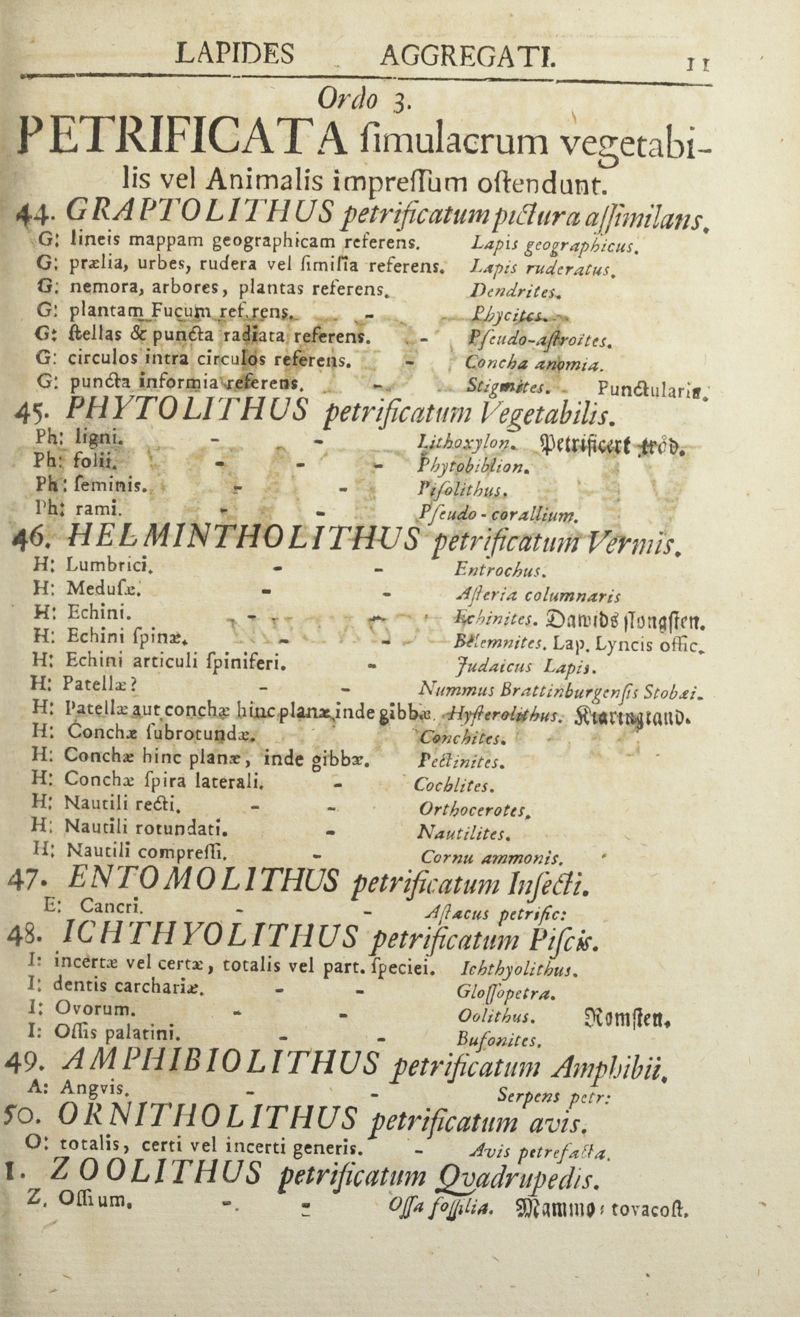 LAPIDES AGGREGATI. 11
Ordo 3.
PETRIFICATA ſimulacrum vegetabi-
lis vel Animalis impreſſum oſtendunt.
44. GRAPTOLITHUS petrificatum pictura aſſimilans.
G: lineis mappam geographicam referens. Lapis geographicus.
G: prælia, urbes, rudera vel ſimilia referens. Lapis ruderatus.
G: nemora, arbores, plantas referens. Dendrites.
G: plantam Fucum referens. - Phycites.
G: ſtellas & puncta radiata referens. - Pſeudo-aſtroites.
G: circulos intra circulos referens. - Concha anomia.
G: puncta informia referens. - Stigmites. Punctularia.
45. PHYTOLITHUS petrificatum Vegetabilis.
Ph: ligni. - - Lithoxylon. Petrificert träd.
Ph: folii. - - - Phytobiblion.
Ph: ſeminis. - - Piſolithus.
Ph: rami. - - Pſeudo-corallium.
46. HELMINTHOLITHUS petrificatum Vermis.
H: Lumbrici. - - Entrochus.
H: Meduſæ. - - Aſteria columnaris
H: Echini. - - - Echinites. Dawids ſtongſten.
H: Echini ſpinæ. - - Belemnites. Lap. Lyncis offic.
H: Echini articuli ſpiniferi. - Judaicus Lapis.
H: Patellæ? - - Nummus Brattinburgenſis Stobæi.
H: Patellæ aut conchæ hinc planæ, inde gibbæ. Hyſterolithus.
H: Conchæ ſubrotundæ. Conchites.
H: Conchæ hinc planæ, inde gibbæ. Pectinites.
H: Conchæ ſpira laterali. - Cochlites.
H: Nautili recti. - - Orthocerotes.
H: Nautili rotundati. - Nautilites.
H: Nautili compreſſi. - Cornu ammonis.
47. ENTOMOLITHUS petrificatum Inſecti.
E: Cancri. - - Aſtacus petrific:
48. ICHTHYOLITHUS petrificatum Piſcis.
I: incertæ vel certæ, totalis vel part. ſpeciei. Ichthyolithus.
I: dentis carchariæ. - - Gloſſopetra.
I: Ovorum. - - Oolithus. Romſten.
I: Oſſis palatini. - - Bufonites.
49. AMPHIBIOLITHUS petrificatum Amphibii.
A: Angvis. - - Serpens petr:
50. ORNITHOLITHUS petrificatum avis.
O: totalis, certi vel incerti generis. - Avis petrefacta.
1. ZOOLITHUS petrificatum Qvadrupedis.
Z. Oſſium. - - Oſſa foſſilia. Mammo⸗ tovacoſt.